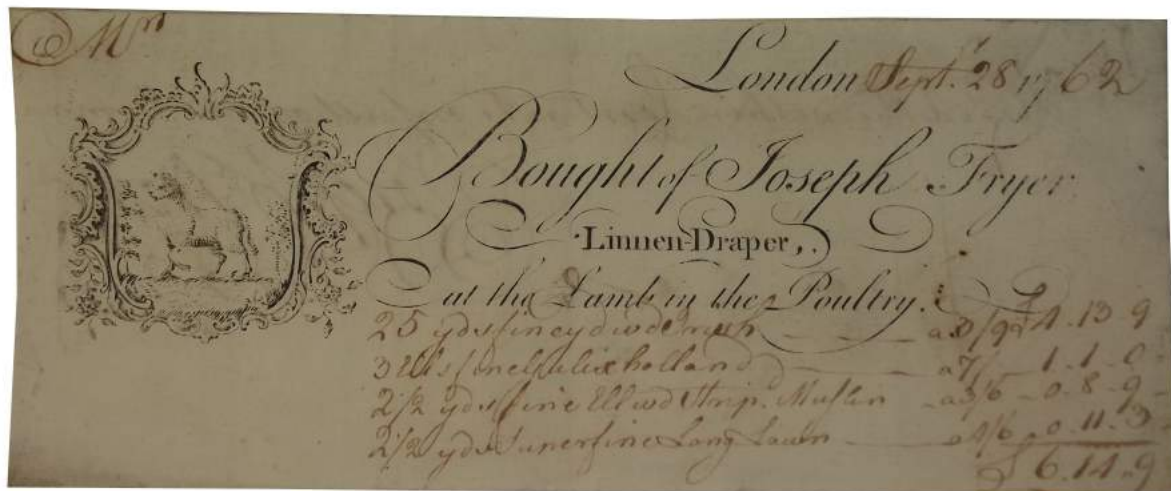 Mrs
London Sept. 28 1762
Bought of Joseph Fryer
Linnen-Draper,.
at the Lamb in the Poultry.
25 yds fine yd wd a 3/9 £ 4.13.9
3 Ells fine holland a 7/ 1.1.0
2 1/2 yds fine Ell wd Strip. Muslin a 3/6 0.8.9
2 1/2 yds Superfine Long Lawn a 4/6 0.11.3
£ 6.14.9